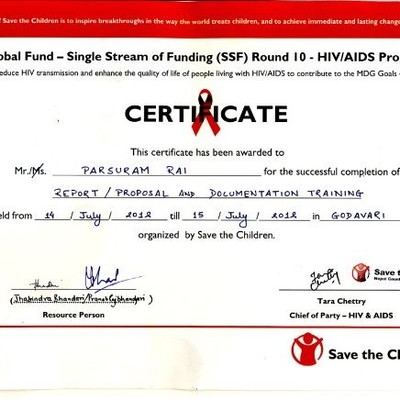 of Save the Children is to inspire breakthroughs in the way the world treats children, and to achieve immediate and lasting change
obal Fund – Single Stream of Funding (SSF) Round 10 - HIV/AIDS Pro
educe HIV transmission and enhance the quality of life of people living with HIV/AIDS to contribute to the MDG Goals
CERTIFICATE
This certificate has been awarded to
Mr./Ms. PARSURAM RAI for the successful completion of
REPORT / PROPOSAL AND DOCUMENTATION TRAINING
eld from 14 / July / 2012 till 15 / July / 2012 in GODAVARI
organized by Save the Children.
Save the
Resource Person
Tara Chettry
Chief of Party – HIV & AIDS
Save the Ch